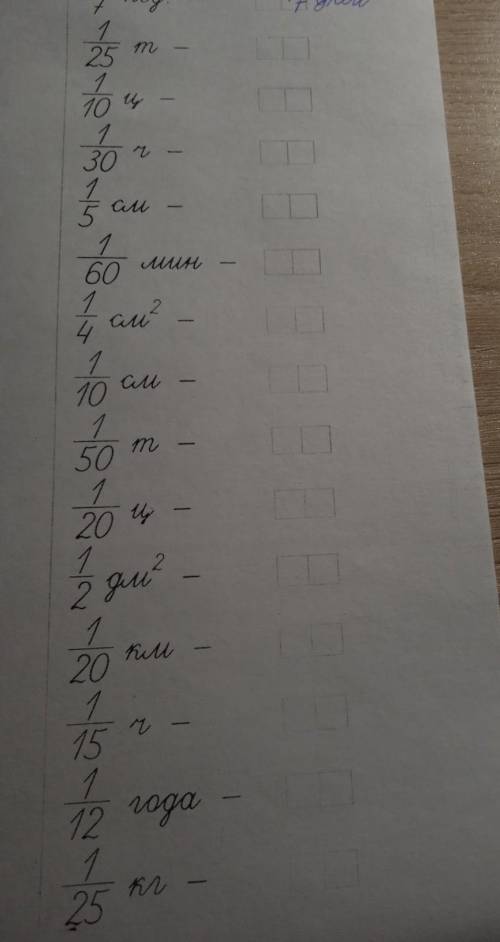 7 дней
1/25 т –
1/10 ц –
1/30 ч –
1/5 см –
1/60 мин –
1/4 см² –
1/10 см –
1/50 т –
1/20 ц –
1/2 дм² –
1/20 км –
1/15 ч –
1/12 года –
1/25 кг –